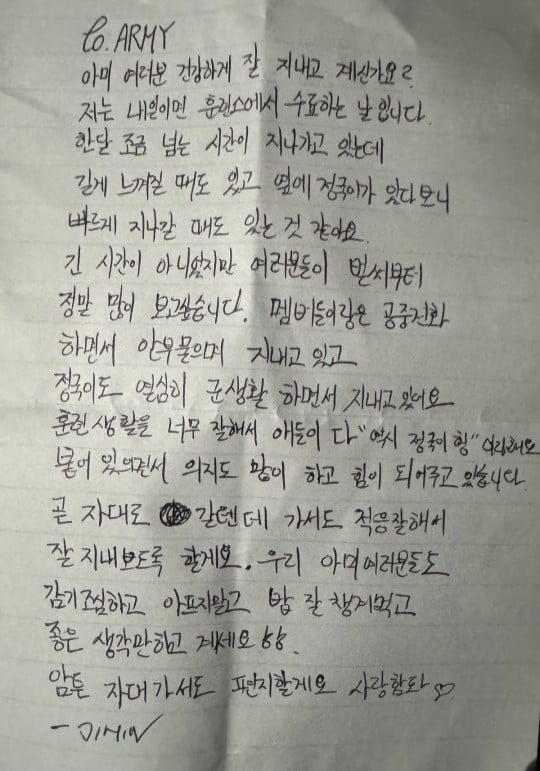 to. ARMY
아미 여러분 건강하게 잘 지내고 계신가요?
저는 내일이면 훈련소에서 수료하는 날 입니다.
한달 조금 넘는 시간이 지나가고 있는데
길게 느껴질 때도 있고 옆에 정국이가 있다보니
빠르게 지나갈 때도 있는 것 같아요.
긴 시간이 아니였지만 여러분들이 벌써부터
정말 많이 보고싶습니다. 멤버들이랑은 공중전화
하면서 안부물으며 지내고 있고
정국이도 열심히 군생활 하면서 지내고 있어요
훈련 생활을 너무 잘해서 애들이 다 "역시 정국이 형" 이래요
붙어 있으면서 의지도 많이 하고 힘이 되어주고 있습니다.
곧 자대로 갈텐데 가서도 적응잘해서
잘 지내보도록 할게요. 우리 아미여러분들도
감기조심하고 아프지말고 밥 잘 챙겨먹고
좋은 생각만하고 계세요 ㅎㅎ.
암튼 자대가서도 편지할게요 사랑함다♡
- JIMIN